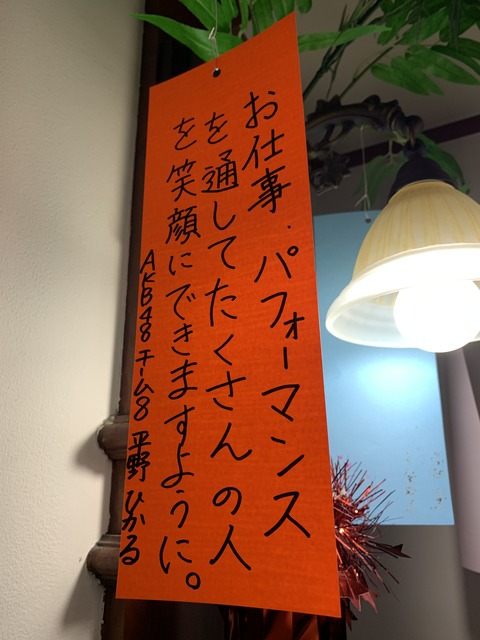 お仕事・パフォーマンス
を通してたくさんの人
を笑顔にできますように。
AKB48 チーム8 平野 ひかる